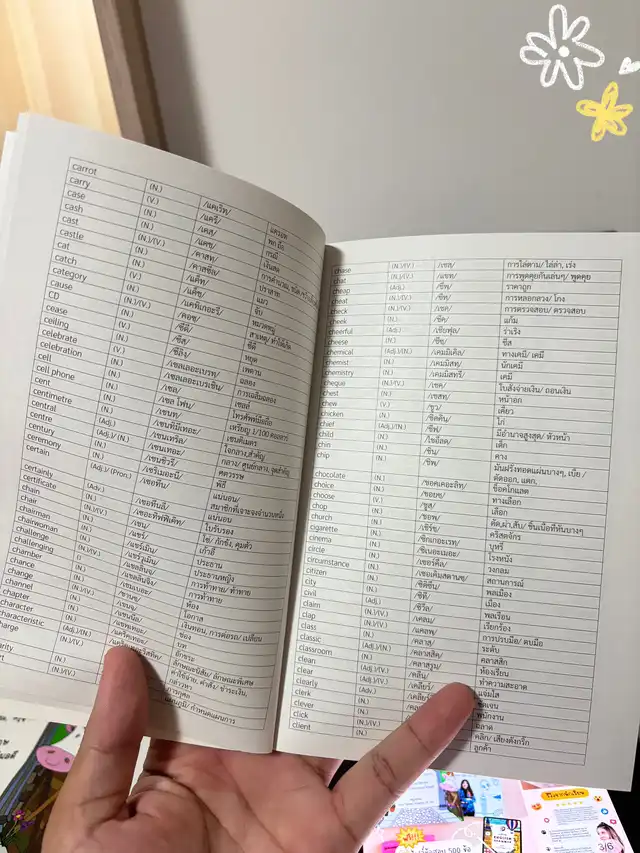 carrot (N.) /แคเร็ท/ แครอท
carry (V.) /แครี่/
case (N.) /เคส/ กรณี
cash (N.) /แคช/ เงินสด
cast (N.)/(V.) /คาสท/
castle (N.) /คาสซึล/ ปราสาท
cat (N.) /แค็ท/ แมว
catch (V.) /แค็ช/ จับ
category (N.) /แคทิเกอะรี/ หมวดหมู่
cause (N.)/(V.) /คอซ/
CD (N.) /ซีดี/ ซีดี
cease (V.) /ซีส/ หยุด
ceiling (N.) /ซีลิง/ เพดาน
celebrate (V.) /เซลเลอะเบรท/ ฉลอง
celebration (N.) /เซลเลอะเบรเชิน/ การเฉลิมฉลอง
cell (N.) /เซล/ เซลล์
cell phone (N.) /เซล โฟน/ โทรศัพท์มือถือ
cent (N.) /เซนท/ เหรียญ 1/100 ดอลลาร์
centimetre (N.) เซนติเมตร
central (Adj.) /เซนเทริล/ ใจกลาง,สำคัญ
centre (Adj.)/(N.) /เซนเทอะ/ กลาง/ ศูนย์กลาง, จุดสำคัญ
century (N.) /เซนชิวรี/ ศตวรรษ
ceremony (N.) /เซริเมอะนี/ พิธี
certain (Adj.)/(Pron.) /เซอทึน/ แน่นอน/
certainly (Adv.) /เซอทึนลิ/ แน่นอน
certificate (N.) ใบรับรอง
chain (N.)/(V.) /เชน/ โซ่/ กักขัง, คุมตัว
chair (N.) /แชร์/ เก้าอี้
chairman (N.) /แชร์เมิน/ ประธาน
chairwoman (N.) ประธานหญิง
challenge (N.)/(V.) /แชลลินจ/ การท้าทาย/ ท้าทาย
challenging /แชลลินจิง/ การท้าทาย
chamber (N.) /เชมเบอะ/ ห้อง
chance (N.) /ชานซ/ โอกาส
change (N.)/(V.) /เชนจ/ เงินทอน, การต่อรถ/ เปลี่ยน
channel (N.) /แชนนึล/ ช่อง
chapter (N.) /แชพเทอะ/ บท
character (N.)
characteristic (Adj.)/(N.) ลักษณะนิสัย/ ลักษณะพิเศษ
(N.)/(V.)
chase (N.)/(V.) /เชส/ การไล่ตาม/ ไล่ล่า, เร่ง
chat (N.)/(V.) /แชท/ การพูดคุยกันเล่นๆ/ พูดคุย
cheap (Adj.) /ชีพ/ ราคาถูก
cheat (N.)/(V.) /ชีท/ การหลอกลวง/ โกง
check (N.)/(V.) /เชค/ การตรวจสอบ/ ตรวจสอบ
cheek (N.) /ชีค/ แก้ม
cheerful (Adj.) /เชียฟุล/ ร่าเริง
cheese (N.) /ชีซ/ ชีส
chemical (Adj.)/(N.) /เคมมิเคิล/ ทางเคมี/ เคมี
chemist (N.) /เคมมิสท/ นักเคมี
chemistry (N.) /เคมมิสทรี/ เคมี
cheque (N.)/(V.) /เชค/ ใบสั่งจ่ายเงิน/ ถอนเงิน
chest (N.) /เชสท/ หน้าอก
chew (V.) /ชูว/ เคี้ยว
chicken (N.) /ชิคคึน/ ไก่
chief (Adj.)/(N.) /ชีฟ/ มีอำนาจสูงสุด/ หัวหน้า
child (N.) /ไชอึลด/ เด็ก
chin (N.) /ชิน/ คาง
chip (N.)/(V.) /ชิพ/ มันฝรั่งทอดแผ่นบางๆ, เบี้ย / ตัดออก, แตก,
chocolate (N.) /ชอคเคอะลิท/ ช็อคโกแลต
choice (N.) /ชอยซ/ ทางเลือก
choose (V.) /ชูส/ เลือก
chop (N.)/(V.) /ชอพ/
church (N.) /เชิร์ช/ คริสตจักร
cigarette (N.) /ซิกเกอะเรท/ บุหรี่
cinema (N.) /ซิเนอะเมอะ/ โรงหนัง
circle (N.) /เซอร์คึล/ วงกลม
circumstance (N.) /เซอเคิมสตานซ/ สถานการณ์
citizen (N.) /ซิติซึน/ พลเมือง
city (N.) /ซิตี/ เมือง
civil (Adj.) /ซีวิล/ พลเรือน
claim (N.)/(V.) /เคลม/ เรียกร้อง
clap (N.)/(V.) /แคลพ/ การปรบมือ/ ตบมือ
class (N.) /คลาส/ ระดับ
classic (Adj.) /คลาสสิค/ คลาสสิก
classroom (N.) /คลาสรูม/ ห้องเรียน
clean (Adj.)/(V.) /คลีน/ ทำความสะอาด
clear (Adj.)/(V.) /เคลียร์/ แจ่มใส
clearly (Adv.) ชัดเจน
clerk (N.) พนักงาน
clever (Adj.) ฉลาด
click (N.)/(V.) คลิก/ เสียงดังกริ๊ก
client (N.) ลูกค้า
500 ข้อ
3/6